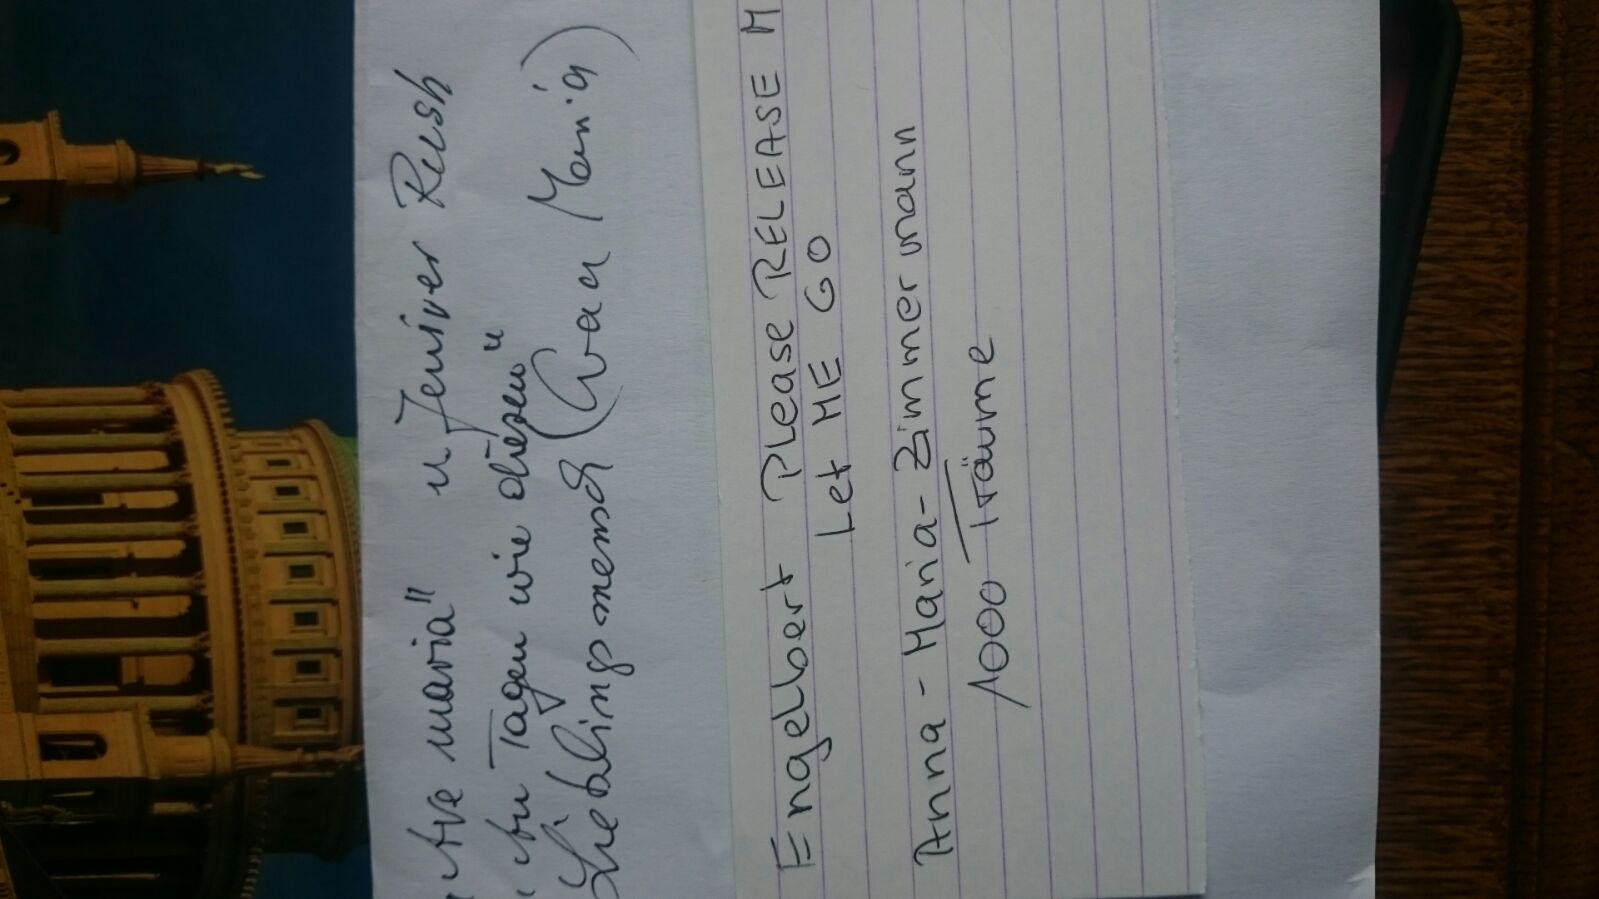 "Ave maria" u Jeniver Rush
"An Tagen wie diesen"
Lieblingsmensch (Maria)
Engelbert Please RELEASE M
Let ME GO
Anna - Maria - Zimmermann
1000 Träume